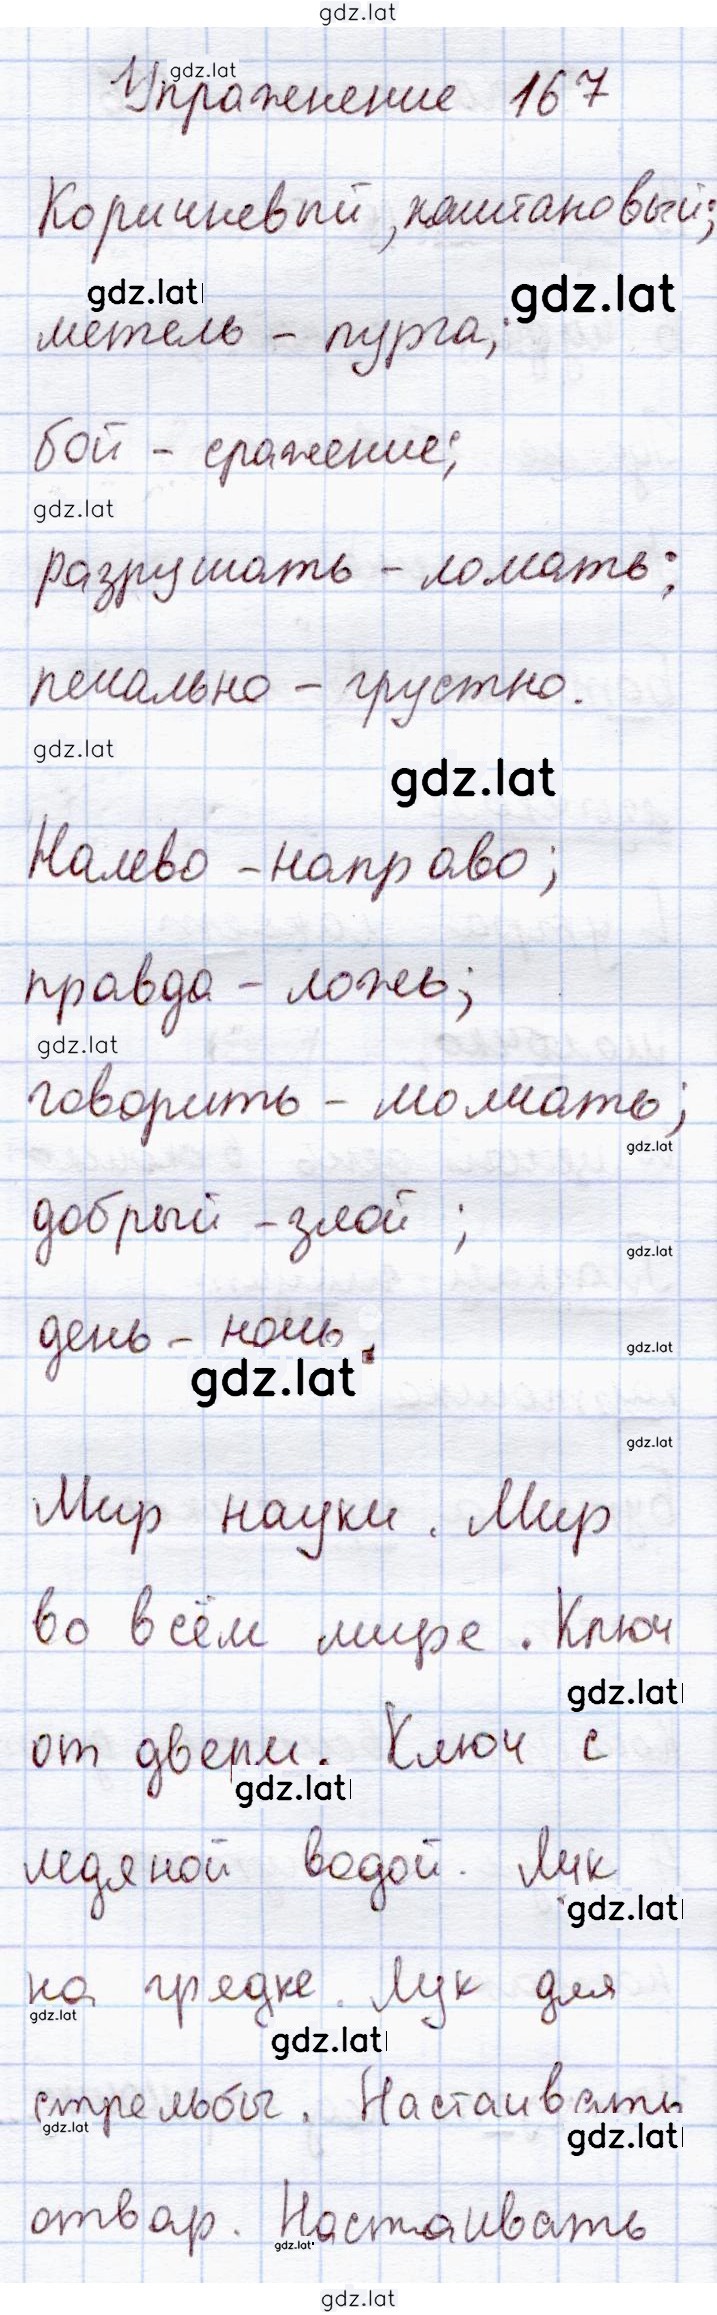 gdz.lat
gdz.lat
Упражнение 167
Коричневый, каштановый;
gdz.lat gdz.lat
метель - пурга;
бой - сражение;
gdz.lat
разрушать - ломать;
печально - грустно.
gdz.lat
gdz.lat
Налево - направо;
правда - ложь;
gdz.lat
говорить - молчать;
gdz.lat
добрый - злой ;
gdz.lat
день - ночь.
gdz.lat
gdz.lat
gdz.lat
Мир науки. Мир
во всём мире. Ключ
gdz.lat
от двери. Ключ с
gdz.lat
ледяной водой. Лук
gdz.lat
на грядке. Лук для
gdz.lat
gdz.lat
стрельбы. Настаивать
gdz.lat gdz.lat
отвар. Настаивать
gdz.lat
gdz.lat